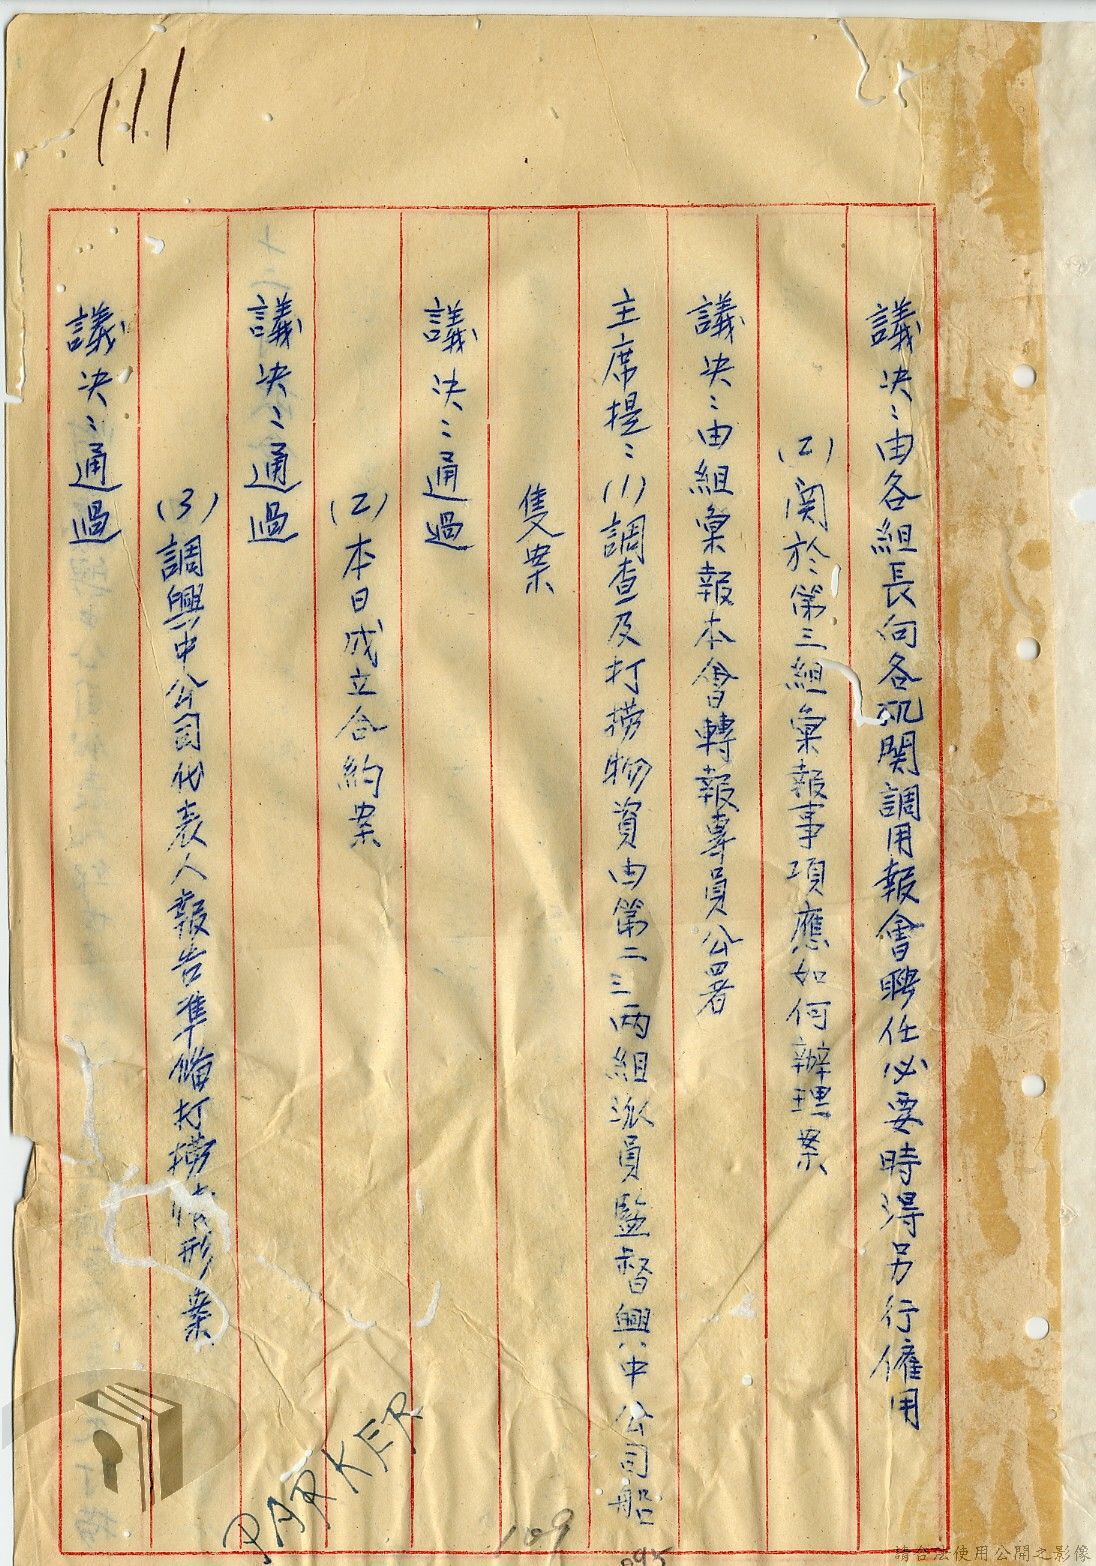 111
議决：由各組長向各机関調用報會聘任必要時得另行僱用
(2)関於第三組彙報事項應如何辦理案
議決：由組彙報本會轉報專員公署
主席提：(1)調查及打撈物資由第二三两組派員監督興中公司船
隻案
議決：通過
(2)本日成立合約案
議決：通過
(3)調興中公司代表人報告準備打撈情形案
議决：通過
PARKER
109
095
請合法使用公開之影像